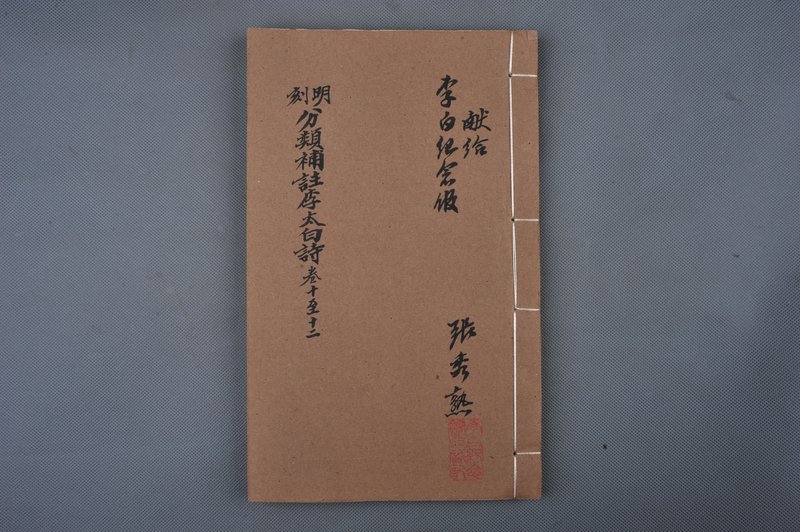 献给
李白纪念馆
张秀熟
明刻分類補註李太白詩卷十至十二